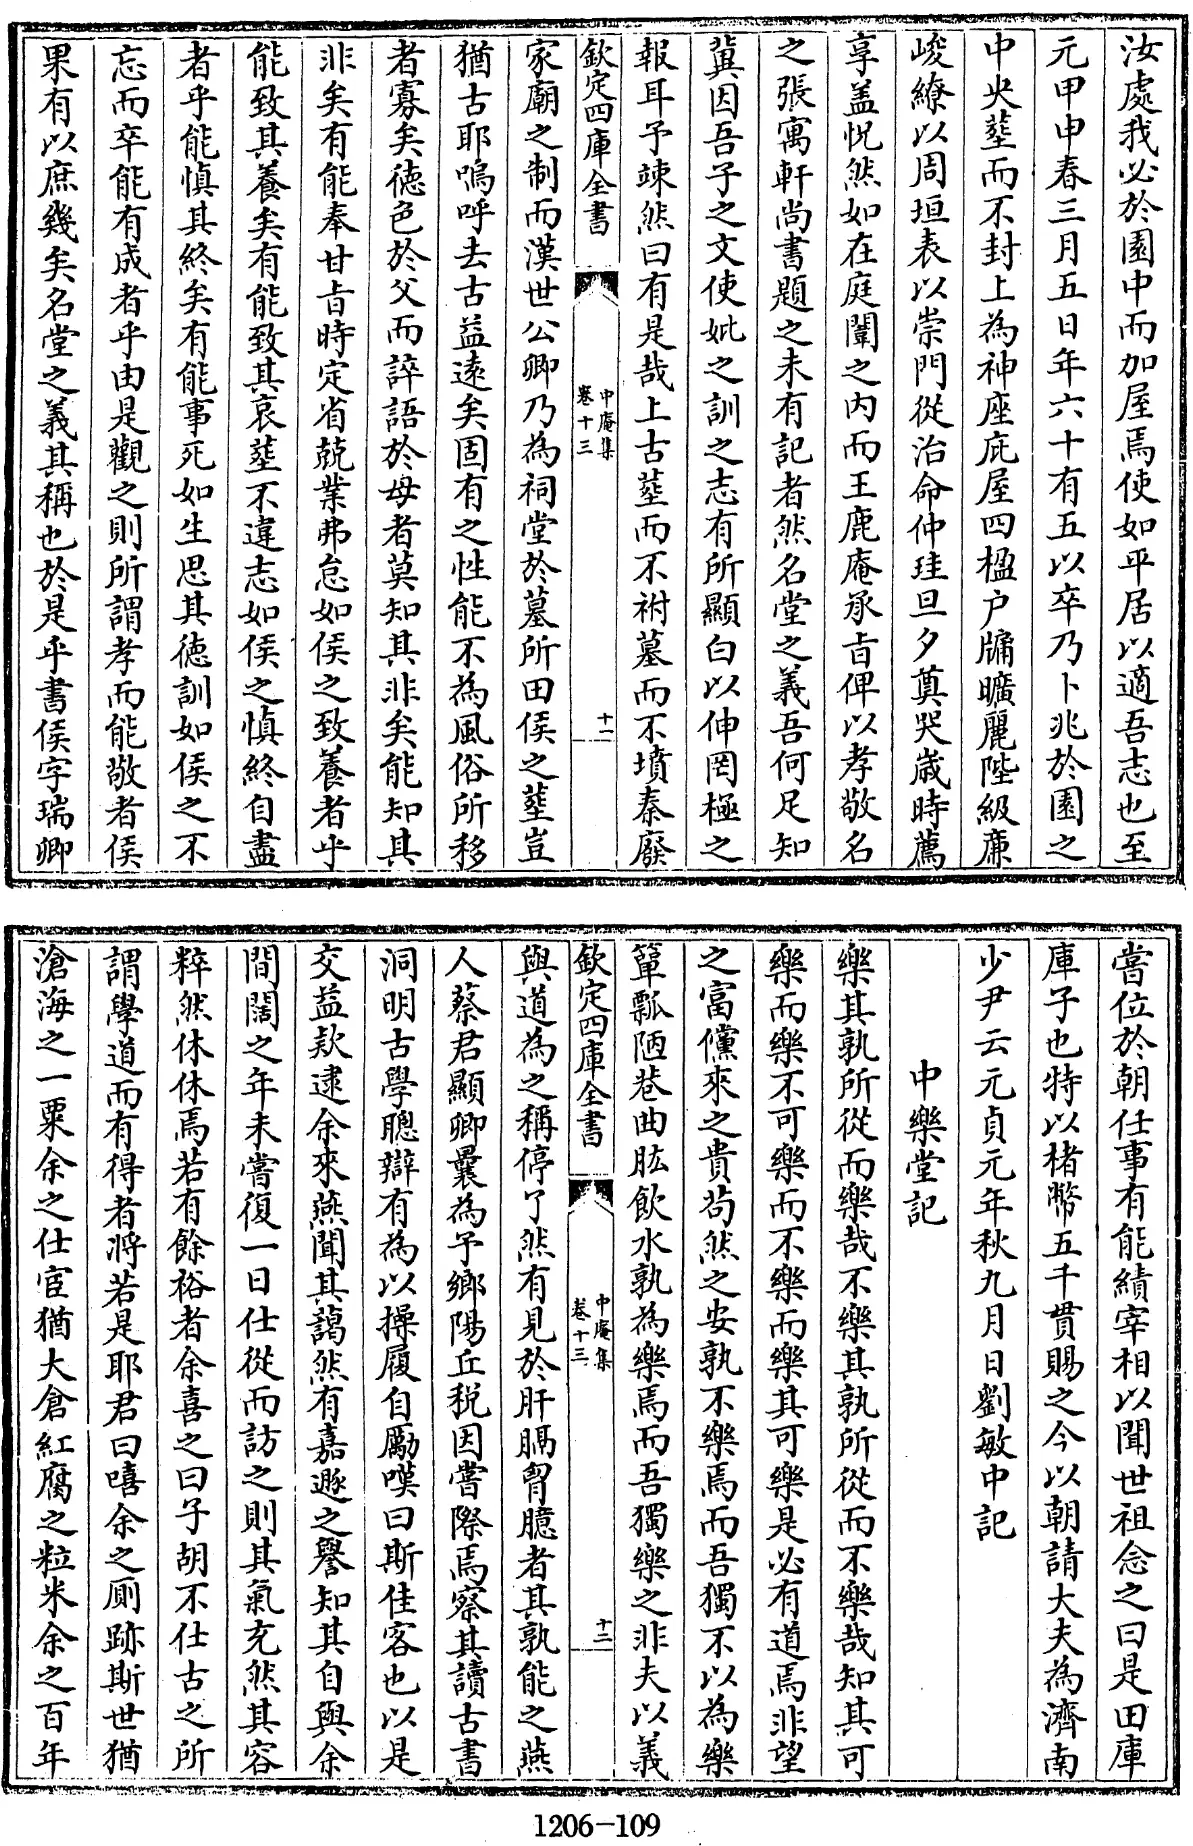 汝處我必於園中而加屋焉使如平居以適吾志也至
元甲申春三月五日年六十有五以卒乃卜兆於園之
中央塟而不封上為神座庇屋四楹户牖曠麗陛級亷
峻繚以周垣表以崇門從治命仲珪旦夕奠哭嵗時薦
享盖怳然如在庭闈之内而王鹿庵承㫖俾以孝敬名
之張寓軒尚書題之未有記者然名堂之義吾何足知
冀因吾子之文使妣之訓之志有所顯白以伸罔極之
報耳予竦然曰有是哉上古塟而不祔墓而不墳秦廢
欽定四庫全書
中庵集
卷十三
十一
家廟之制而漢世公卿乃為祠堂於墓所田侯之塟豈
猶古耶嗚呼去古益逺矣固有之性能不為風俗所移
者寡矣徳色於父而誶語於母者莫知其非矣能知其
非矣有能奉甘㫖時定省兢業弗怠如侯之致養者乎
能致其養矣有能致其哀塟不違志如侯之慎終自盡
者乎能慎其終矣有能事死如生思其徳訓如侯之不
忘而卒能有成者乎由是觀之則所謂孝而能敬者侯
果有以庶幾矣名堂之義其稱也於是乎書侯字瑞卿
嘗位於朝任事有能績宰相以聞世祖念之曰是田庫
庫子也特以楮幣五千貫賜之今以朝請大夫為濟南
少尹云元貞元年秋九月日劉敏中記
中樂堂記
樂其孰所從而樂哉不樂其孰所從而不樂哉知其可
樂而樂不可樂而不樂而樂其可樂是必有道焉非望
之富儻來之貴茍然之安孰不樂焉而吾獨不以為樂
簞瓢陋巷曲肱飲水孰為樂焉而吾獨樂之非夫以義
欽定四庫全書
中庵集
卷十三
十二
與道為之稱停了然有見於肝膈胷臆者其孰能之燕
人蔡君顯卿曩為予鄉陽丘税因嘗際焉察其讀古書
洞明古學聰辯有為以操履自勵嘆曰斯佳客也以是
交益欵逮余來燕聞其藹然有嘉遯之譽知其自與余
間闊之年未嘗復一日仕從而訪之則其氣充然其容
粹然休休焉若有餘裕者余喜之曰子胡不仕古之所
謂學道而有得者將若是耶君曰嘻余之厠跡斯世猶
滄海之一粟余之仕宦猶大倉紅腐之粒米余之百年
1206-109